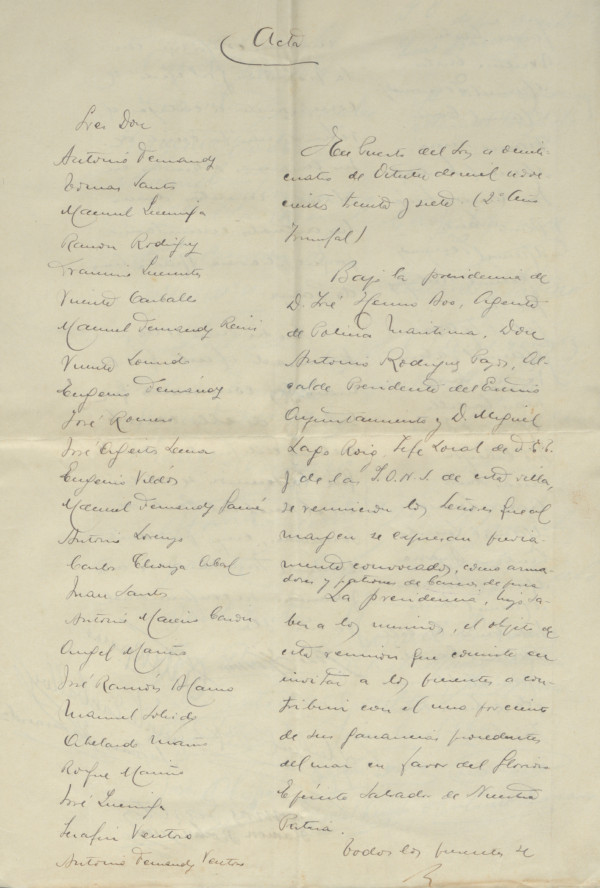 Acta
Sres Don
Antonio Fernandez
Tomas Santos
Manuel
Ramon Rodriguez
Francisco
Vicente Carballo
Manuel Fernandez
Vicente
Eugenio Fernandez
José Romero
José
Eugenio
Manuel Fernandez
Antonio Lorenzo
Carlos
Juan Santos
Antonio
Angel Mariño
José Ramón
Manuel
Abelardo Mariño
Roque Mariño
José
Serafin Ventoso
Antonio Fernandez Ventoso
En Puerto del Son a veinti
cuatro de Octubre de mil nove
cientos treinta y siete (2º Año
Triunfal)
Bajo la presidencia de
D. José Agente
de Policia Maritima, Don
Antonio Rodriguez Al
calde Presidente del Excmo
Ayuntamiento y D. Miguel
Lago Roig, Jefe Local de F.E.T.
y de las J.O.N.S. de esta villa,
se reunieron los Señores que al
margen se expresan previa
mente convocados, como arma
dores y patrones de barcos de pesca
La presidencia, hizo sa
ber a los reunidos, el objeto de
esta reunión que consiste en
invitar a los presentes a con
tribuir con el uno por ciento
de sus ganancias procedentes
del mar en favor del Glorioso
Ejército Salvador de Nuestra
Patria.
Todos los presentes se